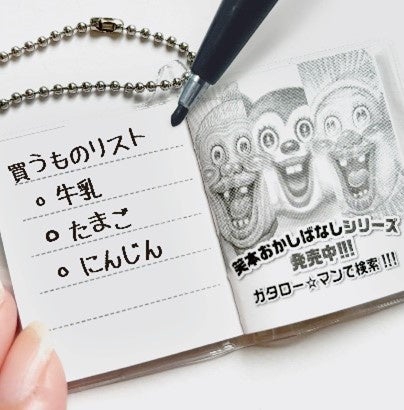 買うものリスト
○ 牛乳
○ たまご
○ にんじん
笑本おかしばなしシリーズ
発売中!!!
ガタロー☆マンで検索!!!